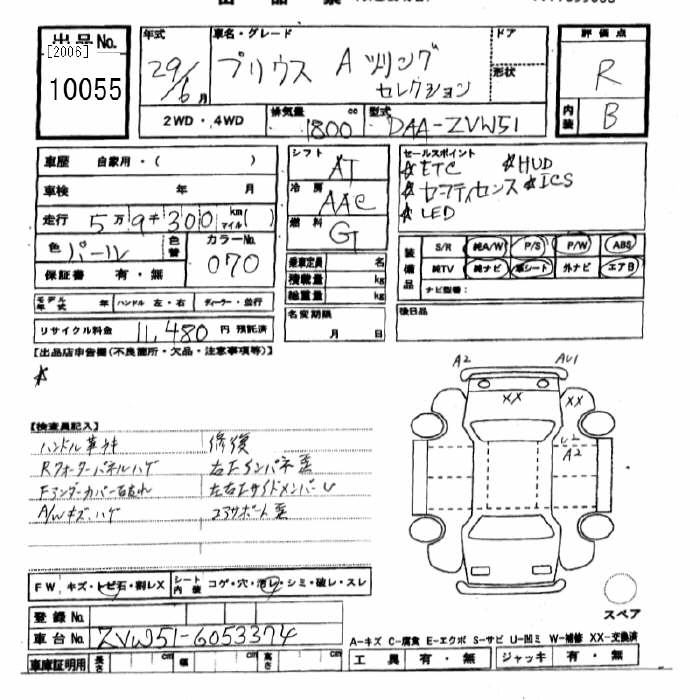 出品No.
[2006]
10055
年式
29/6月
車名・グレード
プリウス A ツーリング
セレクション
ドア
形状
評価点
R
内装 B
2WD・4WD
排気量 1800 cc
型式 DAA-ZVW51
車歴 自家用・( )
車検 年 月
走行 5万9千300km マイル( )
色 パール
色替
カラーNo.
070
保証書 有・無
モデル年式 年 ハンドル 左・右 ディーラー・並行
リサイクル料金 11,480 円 預託済
シフト AT
冷房 AAC
燃料 G
乗車定員 名
積載量 kg
総重量 kg
名変期限
月 日
セールスポイント
☆ETC ☆HUD
☆セーフティセンス ☆ICS
☆LED
装備品
S/R 純A/W P/S P/W ABS
純TV 純ナビ 革シート 外ナビ エアB
ナビ型番:
後日品
【出品店申告欄(不良箇所・欠品・注意事項等)】
☆
【検査員記入】
ハンドル革キキ
Rクォーターパネルハゲ
Fアンダーカバー右左れ
A/Wキズ、ハゲ
修復
右左インパネ歪
左右左サイドメンバーU
コアサポート歪
A2
AU1
XX
XX
A2
スペア
FW キズ・トビ石・割レX
シート内装 コゲ・穴・汚レ・シミ・破レ・スレ
登録No.
車台No. ZVW51-6053374
車庫証明用 長さ cm 幅 cm 高さ cm
A-キズ C-腐食 E-エクボ S-サビ U-凹ミ W-補修 XX-交換済
工具 有・無 ジャッキ 有・無